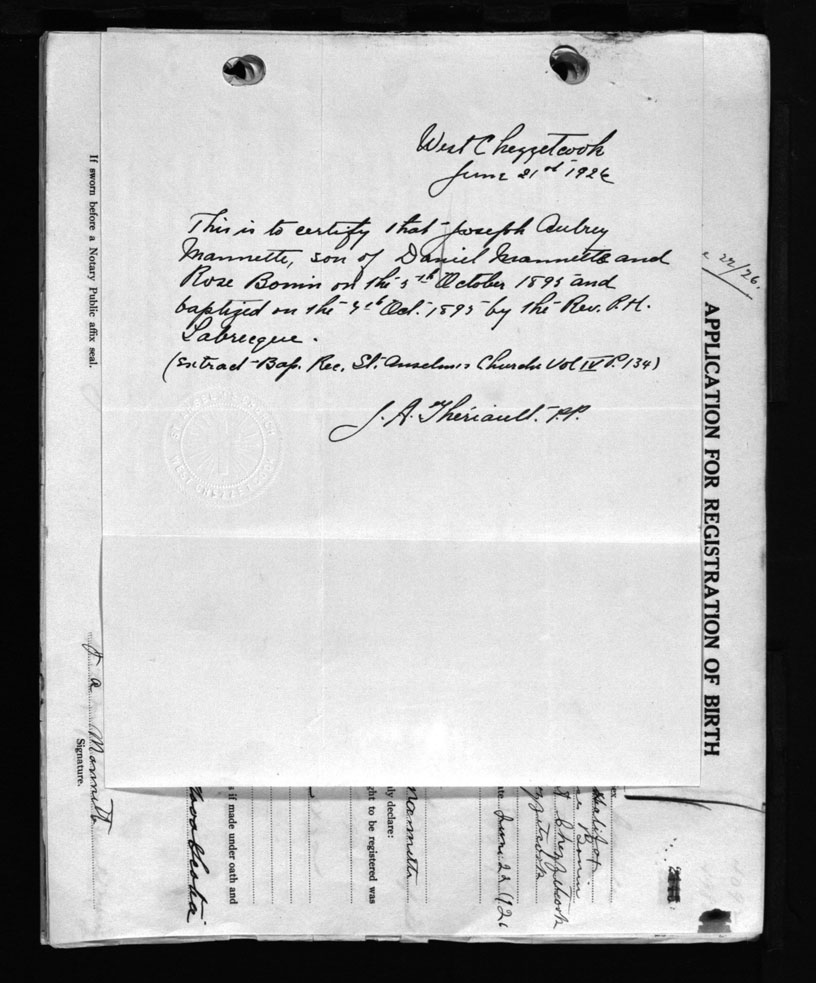 West Chezzetcook
June 21st 1926
This is to certify that Joseph Aubrey
Mannette, son of Daniel Mannette and
Rose Bonin on the 5th October 1895 and
baptized on the 7th Oct. 1895 by the Rev. P.H.
Labrecque.
(Extract Bap. Rec. St. Anselms Church Vol IV P. 134)
J. A. Thériault. P.P.
If sworn before a Notary Public affix seal.
J A Mannette
Signature.
22/26.
APPLICATION FOR REGISTRATION OF BIRTH
Halifax
Bonin
Chezzetcook
June 22 1926
Mannette
ly declare:
ght to be registered was
s if made under oath and
Scotia